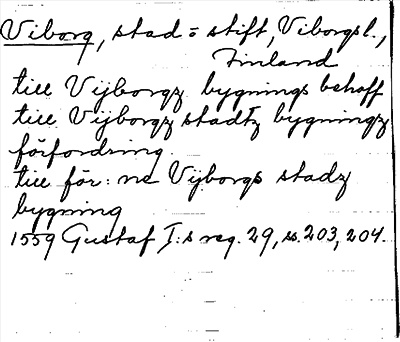 Viborg, stad o stift, Viborgsl.,
Finland
till Vijborgz bygnings behoff
till Vijborgz stadtz bygningz
förfordring.
till för: ne Vijborgs stadz
bygning
1559 Gustaf I:s reg. 29, ss. 203, 204.